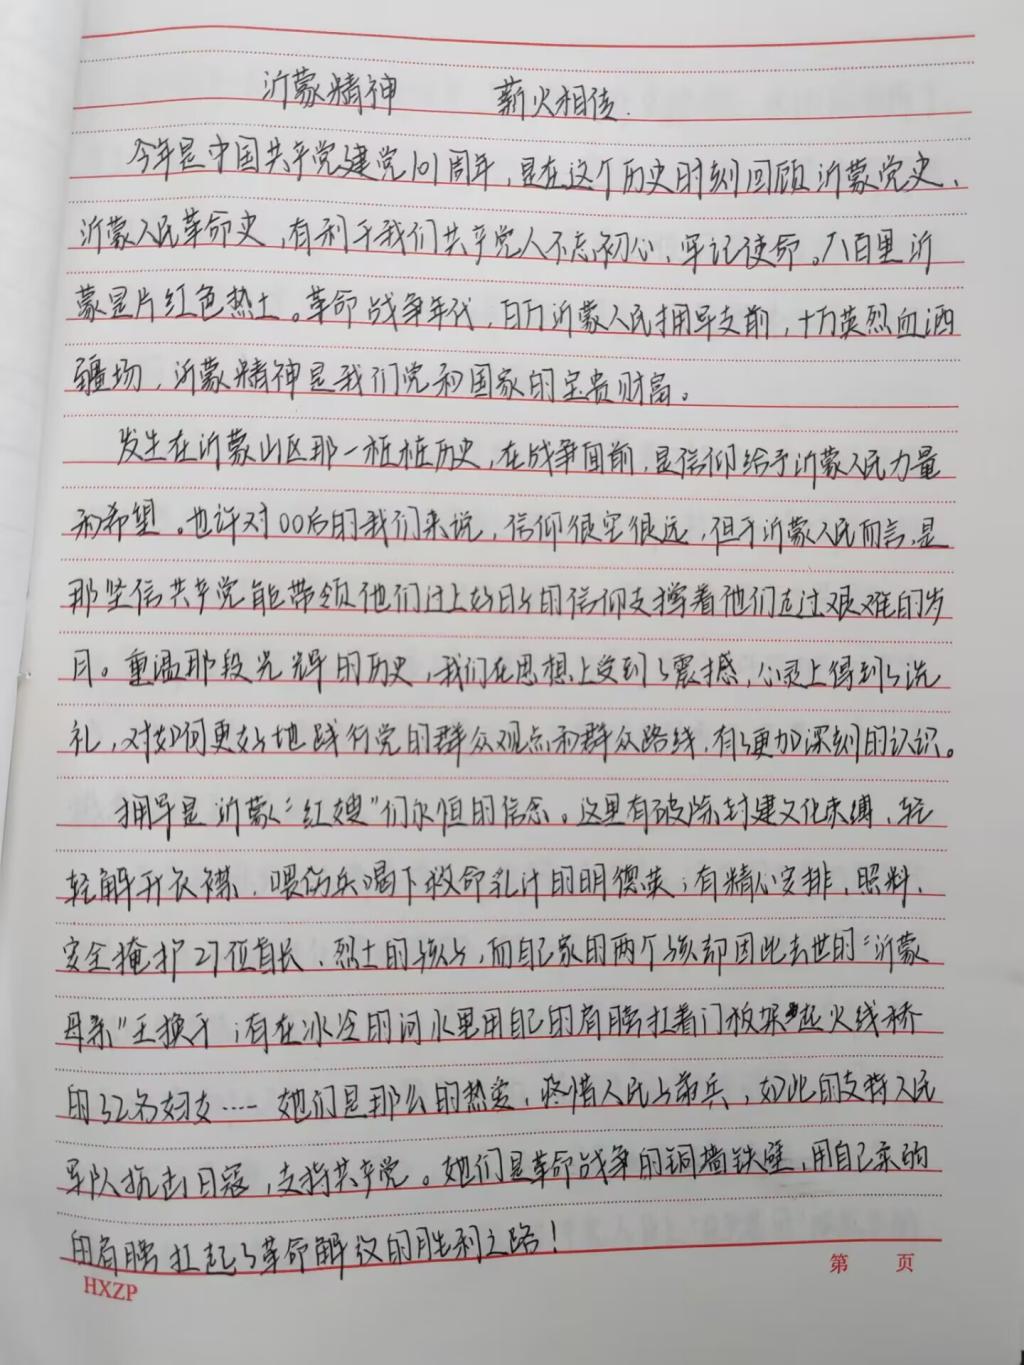 沂蒙精神 薪火相传.
今年是中国共产党建党101周年,是在这个历史时刻回顾沂蒙党史、
沂蒙人民革命史,有利于我们共产党人不忘初心、牢记使命。八百里沂
蒙是片红色热土。革命战争年代,百万沂蒙人民拥军支前,十万英烈血洒
疆场,沂蒙精神是我们党和国家的宝贵财富。
发生在沂蒙山区那一桩桩历史,在战争面前,是信仰给予沂蒙人民力量
和希望。也许对00后的我们来说,信仰很空很远,但于沂蒙人民而言,是
那坚信共产党能带领他们过上好日子的信仰支撑着他们走过艰难的岁
月。重温那段光辉的历史,我们在思想上受到了震撼,心灵上得到了洗
礼,对如何更好地践行党的群众观点和群众路线,有了更加深刻的认识。
拥军是沂蒙“红嫂”们永恒的信念。这里有破除封建文化束缚、轻
轻解开衣襟、喂伤兵喝下救命乳汁的明德英;有精心安排、照料、
安全掩护27位首长、烈士的孩子,而自己家的两个孩却因此去世的“沂蒙
母亲”王换于;有在冰冷的河水里用自己的肩膀扛着门板架起火线桥
的32名妇女…… 她们是那么的热爱、疼惜人民子弟兵,如此的支持人民
军队抗击日寇,支持共产党。她们是革命战争的铜墙铁壁,用自己柔弱
的肩膀扛起了革命解放的胜利之路!
第 页
HXZP